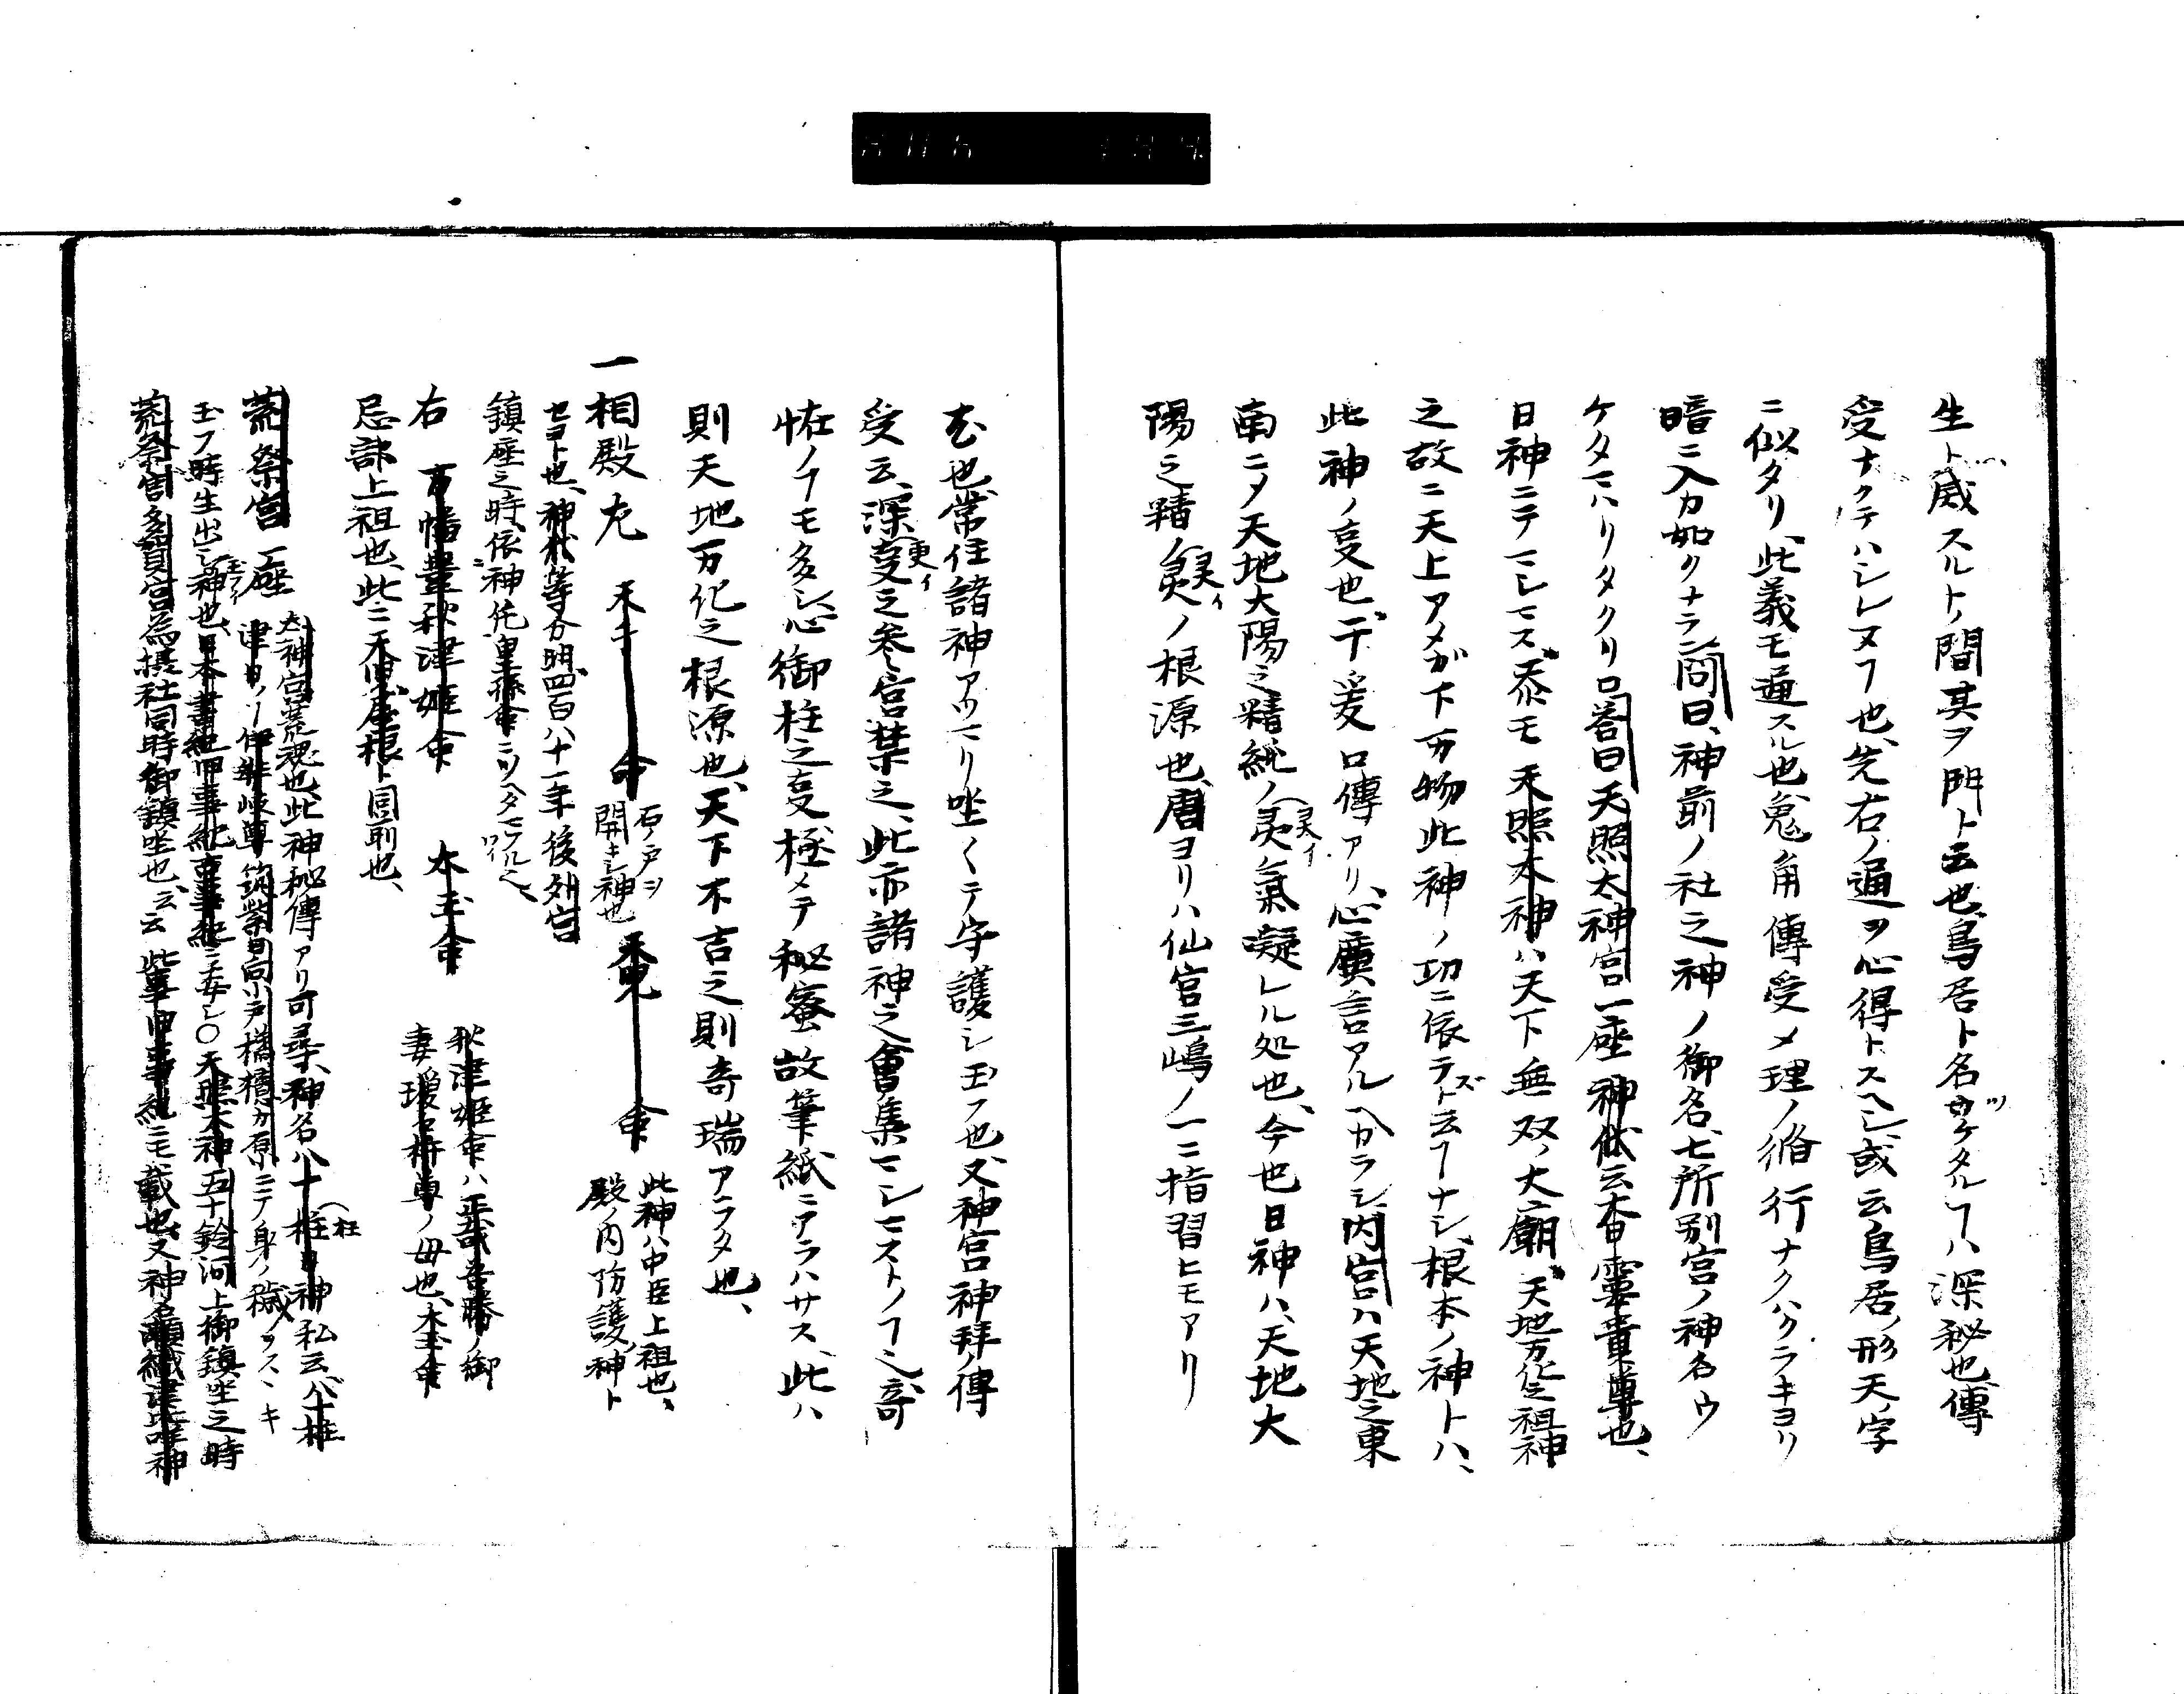 生ト威スルトノ間其ヲ門ト云也、鳥居ト名サケタルヿハ深秘也、傳
受ナクテハシレヌヿ也、先右ノ通ヲ心得トスヘシ、或云鳥居ノ形天ノ字
ニ似タリ、此義モ通スル也、兔角傳受メ理ノ修行ナクハクラキヨリ
暗ニ入カ如クナラン、問曰、神前ノ社之神ノ御名、七所別宮ノ神名ウ
ケタマハリタクリロ答曰天照太神宮一座神代云大日孁貴尊也、
日神ニテマシマス、忝モ天照太神ハ天下無双ノ大廟、天地万化之祖神
之故ニ天上アメガ下万物此神ノ功ニ依ラズト云ヿナシ、根本ノ神トハ、
此神ノ支也、干爰口傳アリ、心廣言アルヘカラシ、内宮ハ天地之東
南ニメ天地大陽之精純ノ灵氣凝レル処也、今也日神ハ、天地大
陽之精ノ灵ノ根源也、唐ヨリハ仙宮三嶋ノ一ニ指習ヒモアリ
玄也、常住諸神アツマリ坐〱テ守護シ玉フ也、又神宮神拜ノ傳
受云、深更之参宮禁之、此亦諸神之會集マシマストノヿ也、奇
怪ノヿモ多シ、心御柱之支極メテ秘蜜故筆紙ニアラハサス、此ハ
則天地万化之根源也、天下不吉之則奇瑞アラタ也、
一相殿左 天手 命 石ノ戸ヲ開キシ神也 命 此神ハ中臣上祖也、殿ノ内防護ノ神ト
セヨト也、神代等分明、四百八十一年後外宮
鎮座之時、依神託皇孫命ニツヘタマフル
右 万幡豊秋津姫命 太玉命 秋津姫命ハ正哉吾勝ノ御妻瓊々杵尊ノ母也、太玉命
忌部上祖也、此ニ天児屋根ト同前也、
荒祭宮一座 太神宮荒魂也、此神秘傳アリ可尋、神名ハ十柱神私云、八十柱
津日ノ伊弉諾尊筑紫日向小戸橘檍カ原ニテノ身ノ穢ヲスヽキ
玉フ時生出シ神也、日本書紀旧事紀古事紀ニ委シ〇天照太神五十鈴河上御鎮坐之時
荒祭宮多賀宮為摂社同時御鎮坐也、云云 此事旧事紀ニモ載也、又神名瀬織津姫神